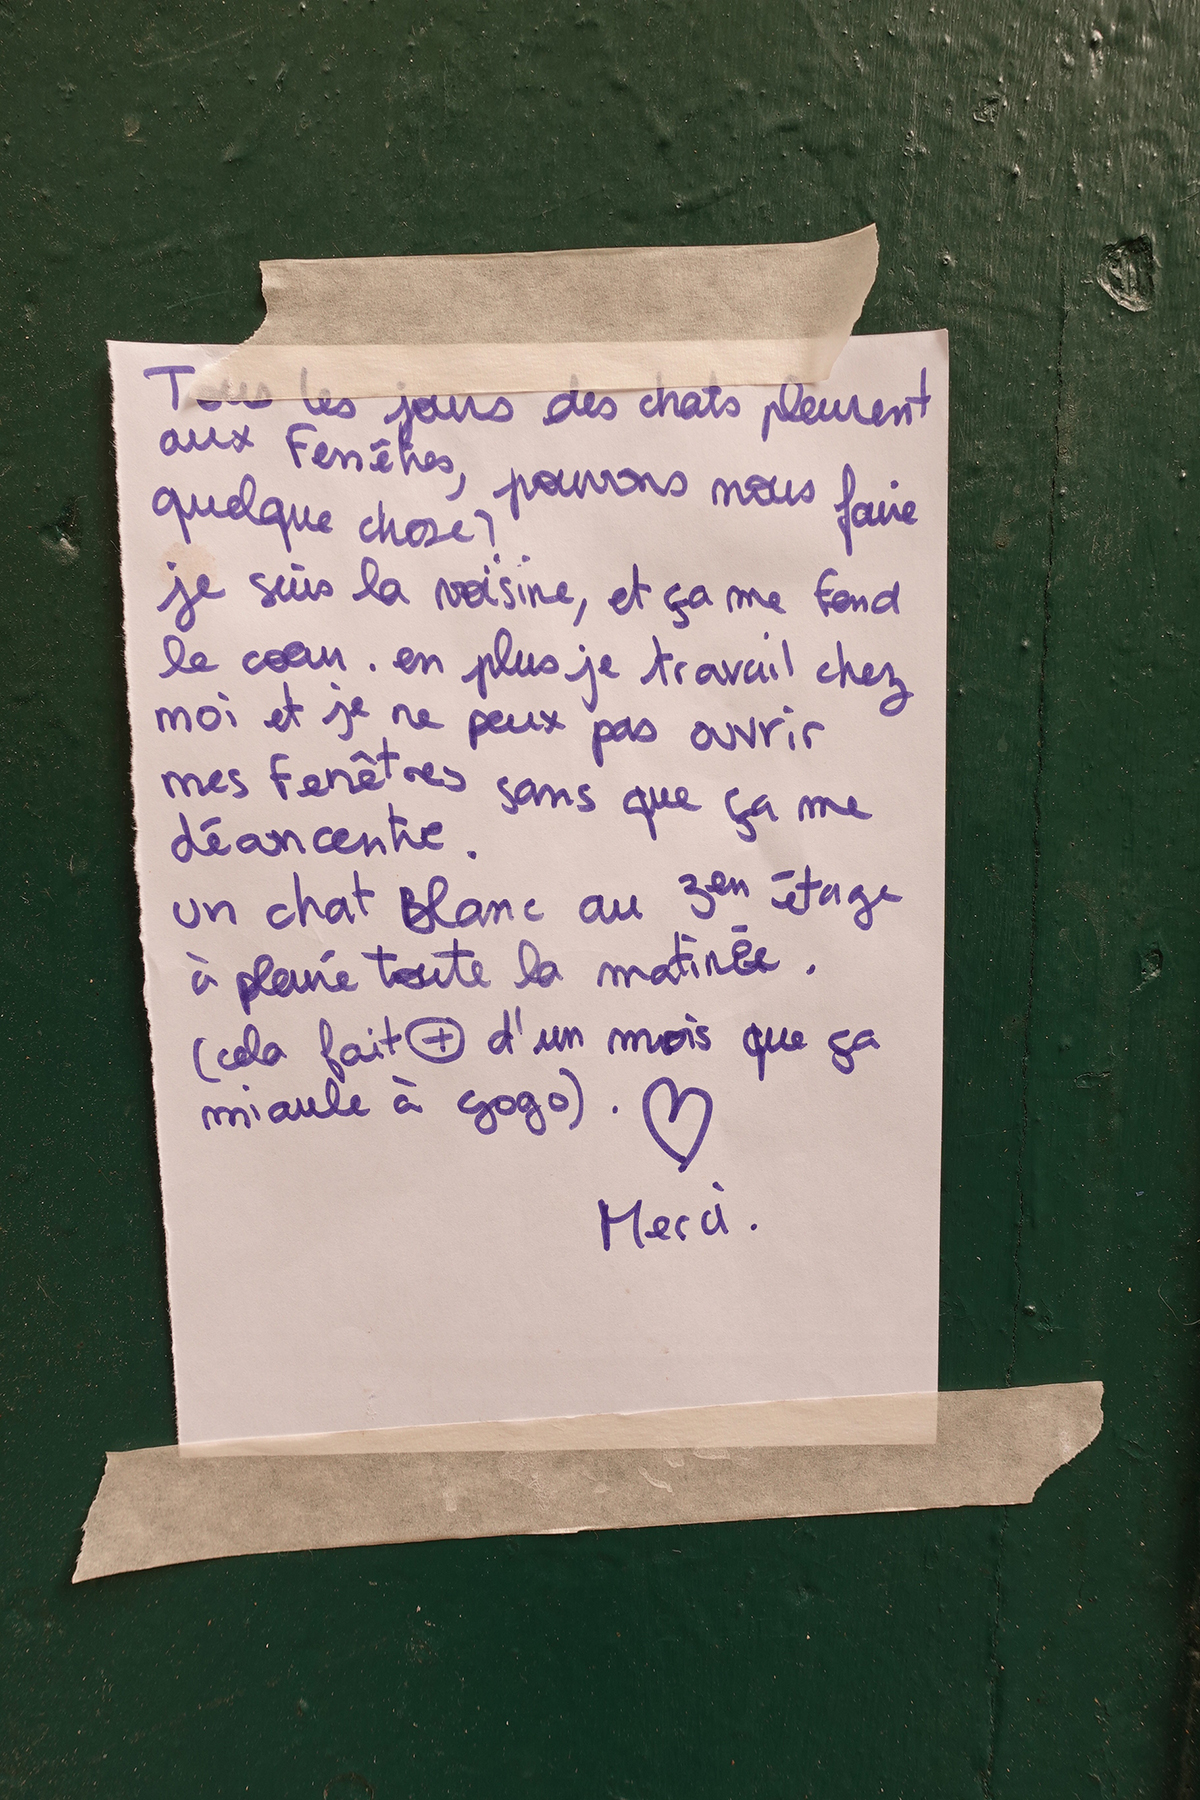 Tous les jours des chats pleurent
aux Fenêtres, pouvons nous faire
quelque chose?
je suis la voisine, et ça me fend
le coeur. en plus je travail chez
moi et je ne peux pas ouvrir
mes Fenêtres sans que ça me
déconcentre.
un chat Blanc au 3em étage
à pleuré toute la matinée.
(cela fait + d'un mois que ça
miaule à gogo). ♡
Merci.